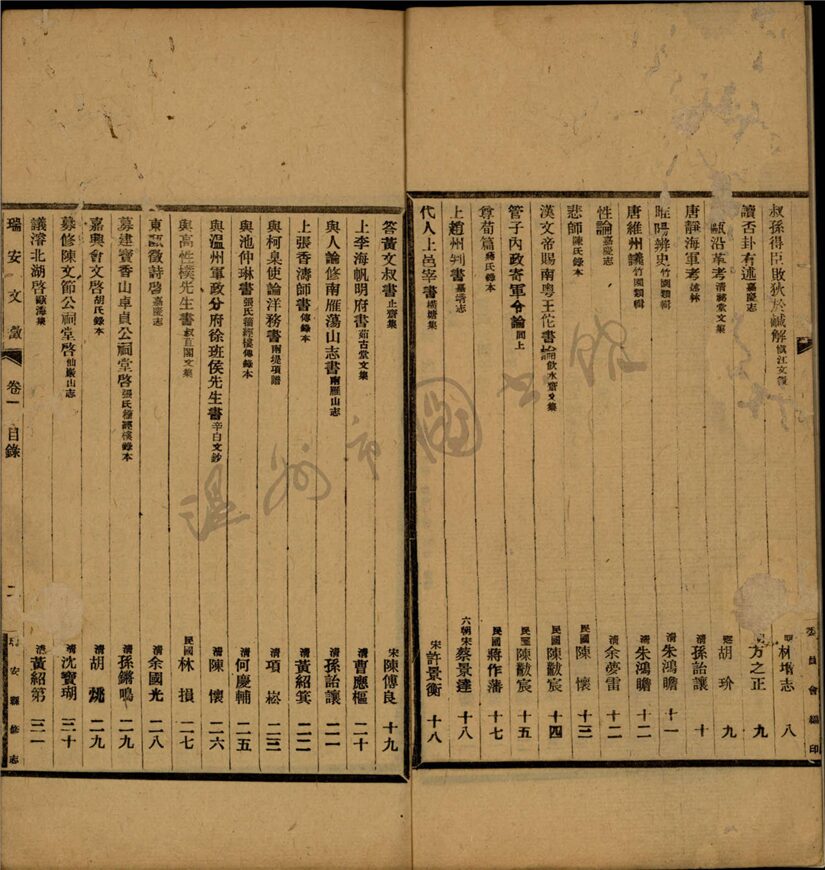 叔孫得臣敗狄於鹹解 慎江文徵 明 林增志 八
讀否卦有述 嘉慶志 方之正 九
甌沿革考 清 胡玠 九
唐靜海軍考 述林 清 孫詒讓 十
睢陽辨史 竹園類輯 清 朱鴻瞻 十一
唐維州議 竹園類輯 清 朱鴻瞻 十二
性論 嘉慶志 清 余夢雷 十二
悲師 陳氏錄本 民國 陳懷 十三
漢文帝賜南粵王佗書 飲水齋文集 民國 陳黻宸 十四
管子內政寄軍令論 同上 民國 陳黻宸 十五
尊荀篇 蔣氏錄本 民國 蔣作藩 十七
上趙州判書 嘉靖志 六朝宋 蔡景達 十八
代人上邑宰書 橫塘集 宋 許景衡 十八
委員會編印
答黃文叔書 止齋集 宋 陳傅良 十九
上李海帆明府書 茹古堂文集 清 曹應樞 二十
與人論修南雁蕩山志書 南雁山志 清 孫詒讓 二一
上張香濤師書 傳錄本 清 黃紹箕 二二
與柯臬使論洋務書 南堤項譜 清 項崧 二三
與池仲琳書 張氏穜經樓傳錄本 清 何慶輔 二五
與溫州軍政分府徐班侯先生書 辛白文鈔 清 陳懷 二六
與高性樸先生書 叔苴閣文集 民國 林損 二七
東甌徵詩啓 嘉慶志 清 余國光 二八
募建寶香山卓貞公祠堂啓 張氏穜經樓錄本 清 孫鏘鳴 二九
嘉興會文啓 胡氏錄本 清 胡 二九
募修陳文節公祠堂啓 仙巖山志 清 沈寶瑚 三十
議濬北湖啓 甌海集 清 黃紹第 三一
瑞安文徵 卷一 目錄 二 瑞安縣修志
溫州市圖書館